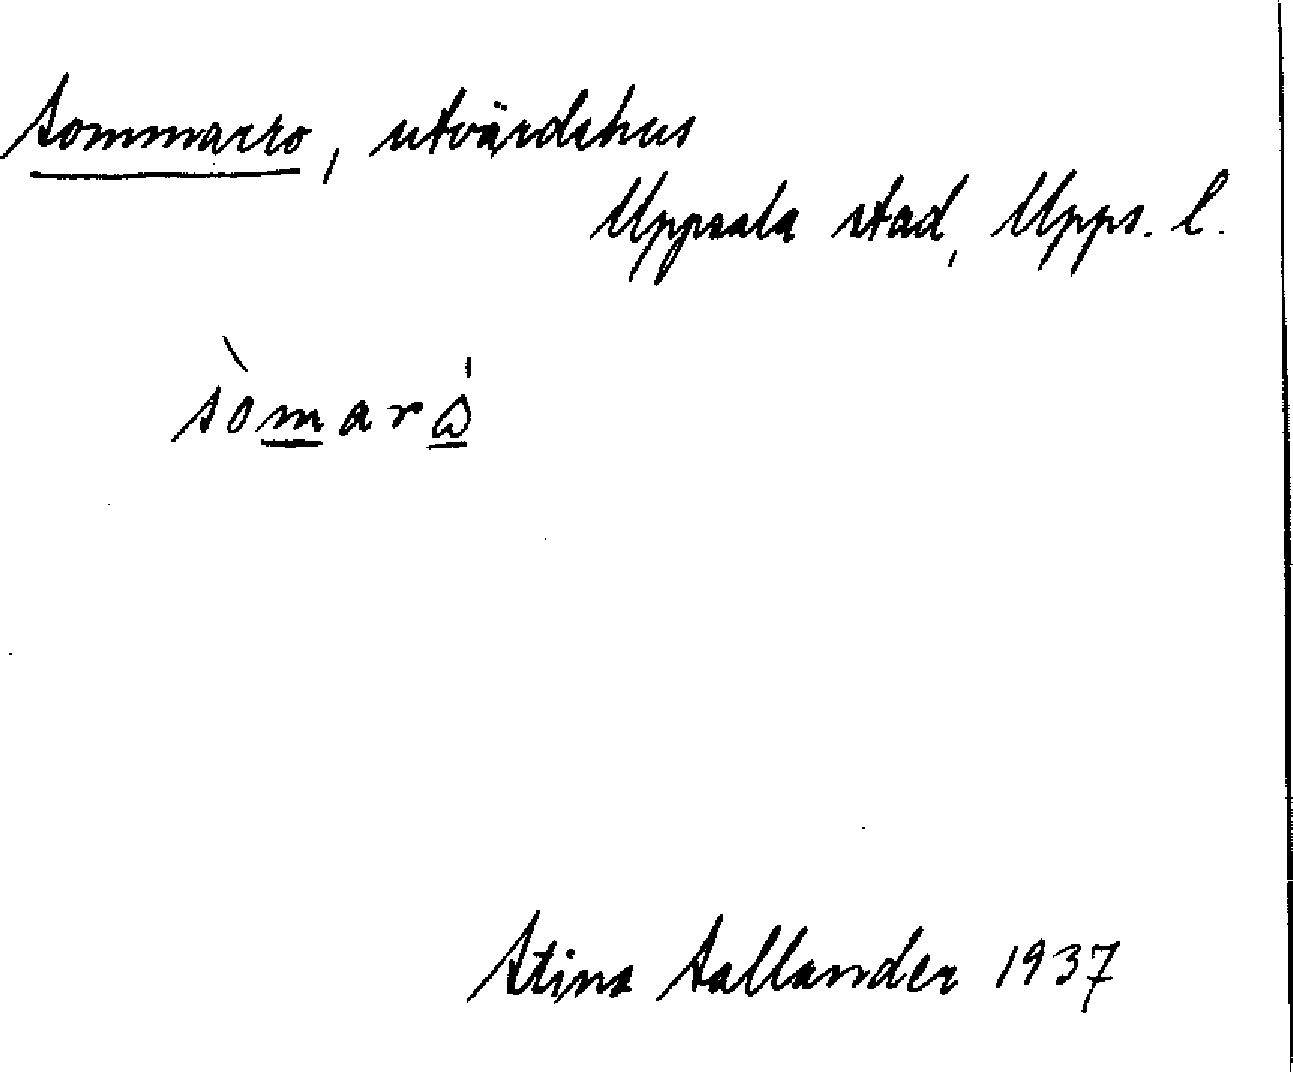 Sommarro, utvärdshus
Uppsala stad, Upps. l.
sòmarω̲
Stina Sallander 1937